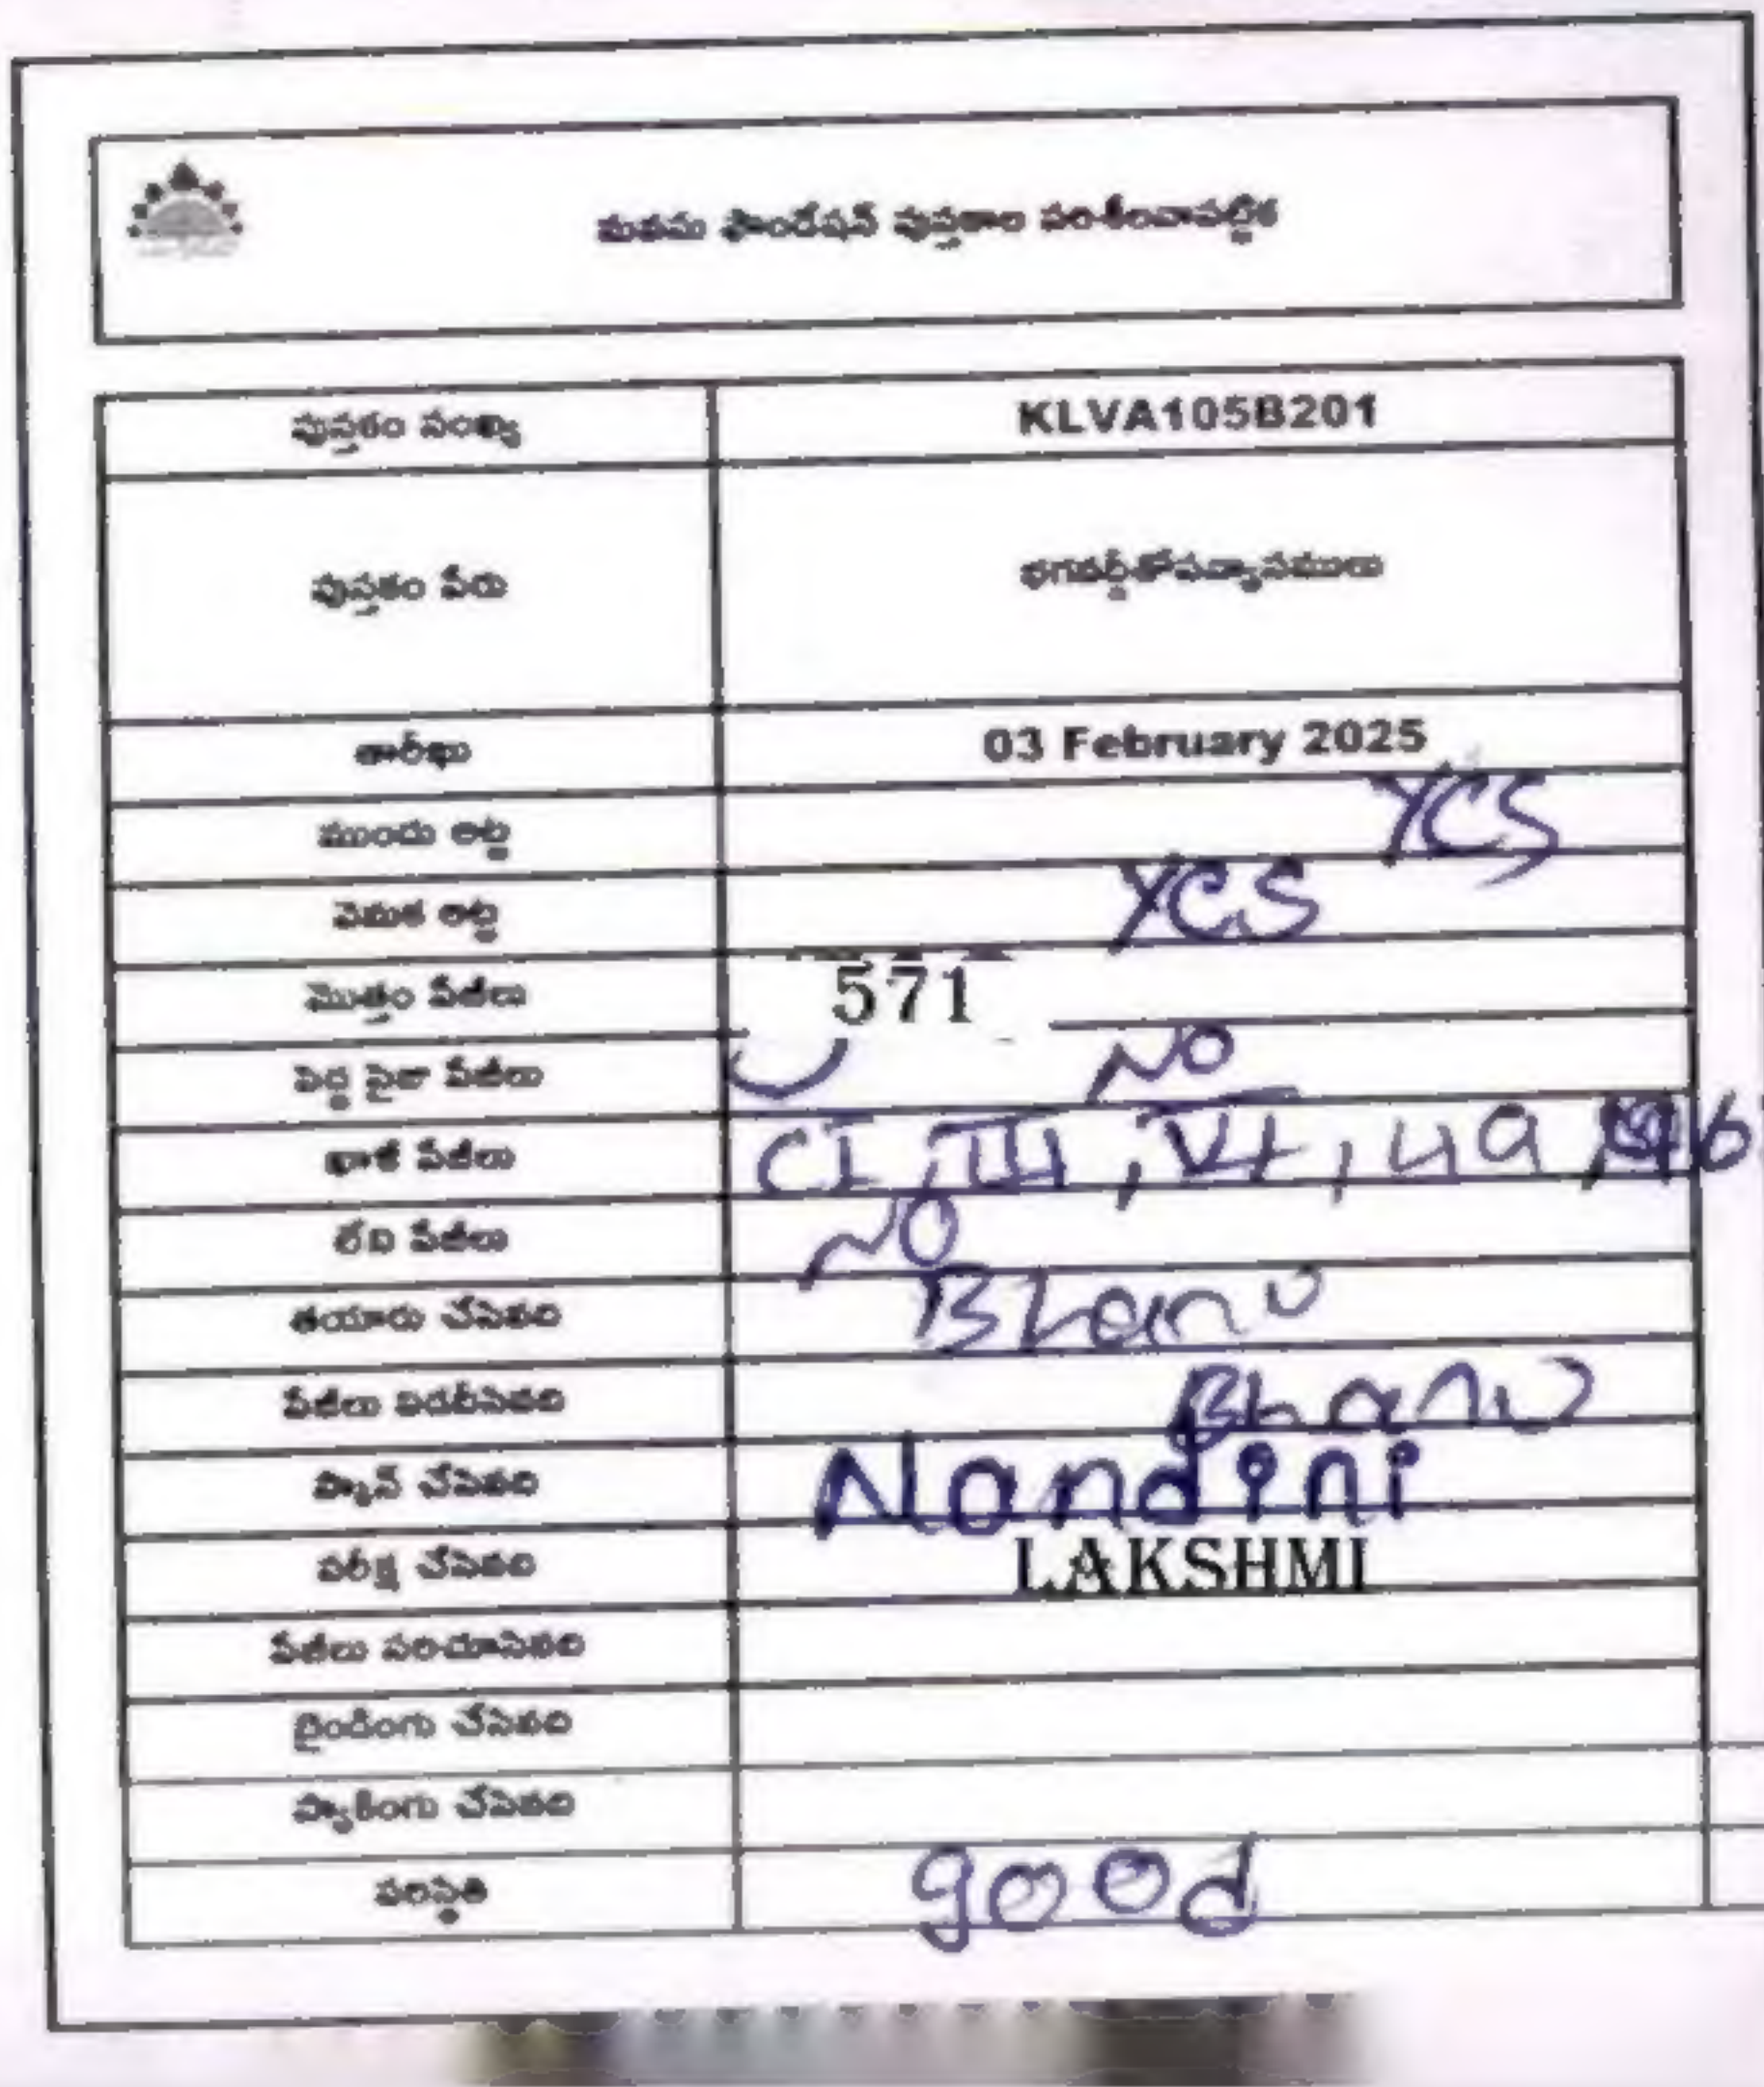 మనసు ఫౌండేషన్ పుస్తకాల పరిశీలనాపట్టిక
పుస్తకం సంఖ్య KLVA105B201
పుస్తకం పేరు భగవద్గీతోపన్యాసములు
తారీఖు 03 February 2025
ముందు అట్ట YCS
వెనుక అట్ట YCS
మొత్తం పేజీలు 571
పెద్ద సైజు పేజీలు NO
ఖాళీ పేజీలు CI, III, VI, 49
లేని పేజీలు NO
తయారు చేసినది Bhanu
పేజీలు విడదీసినది Bhanu
స్కాన్ చేసినది Nandini
పరీక్ష చేసినది LAKSHMI
పేజీలు సరిచూసినది
బైండింగు చేసినది
ప్యాకింగు చేసినది
పరిస్థితి good